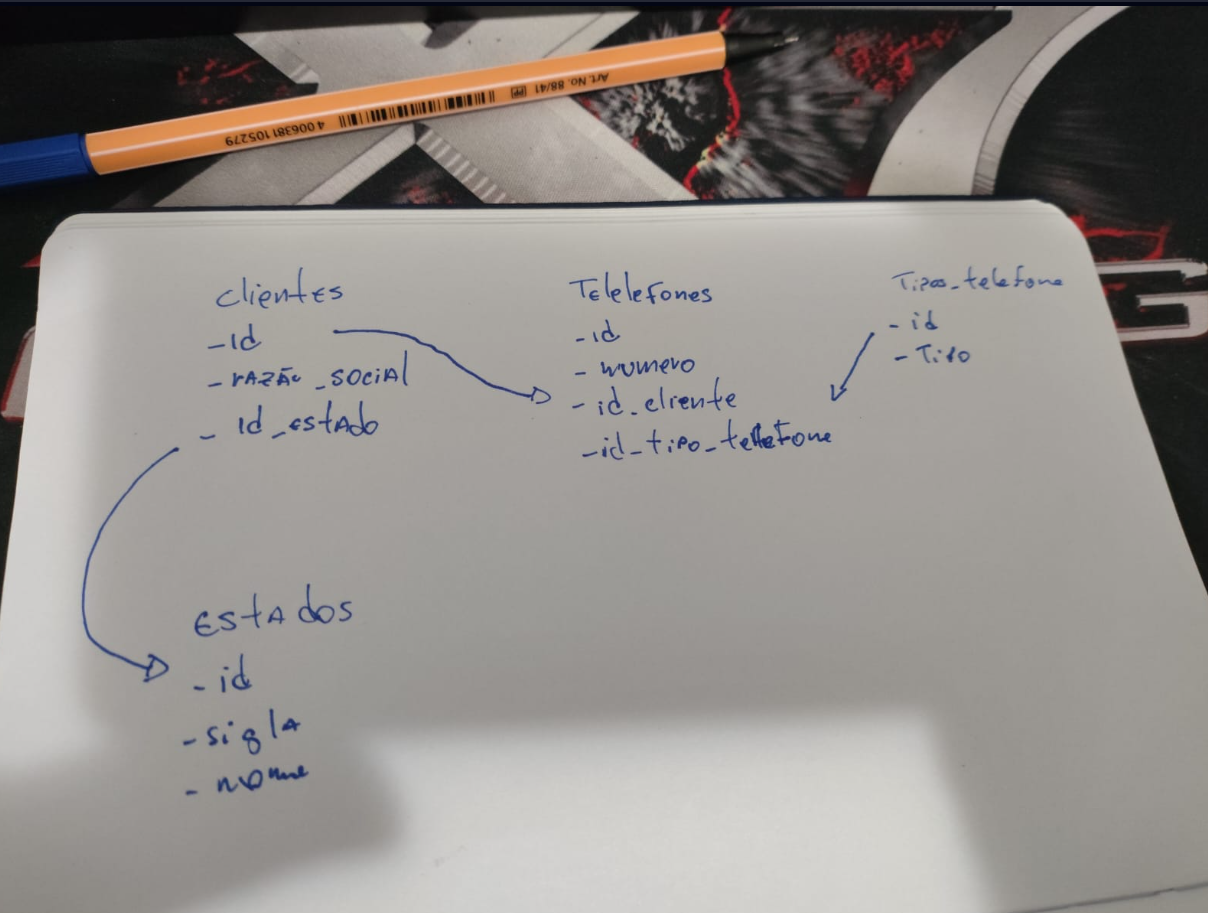 Art. No. 88/41
4 006381 105279
Clientes
- Id
- razão_social
- Id_estado
Telelefones
- id
- numero
- id_cliente
- id_tipo_telefone
Tipos_telefone
- id
- Tipo
Estados
- id
- sigla
- nome